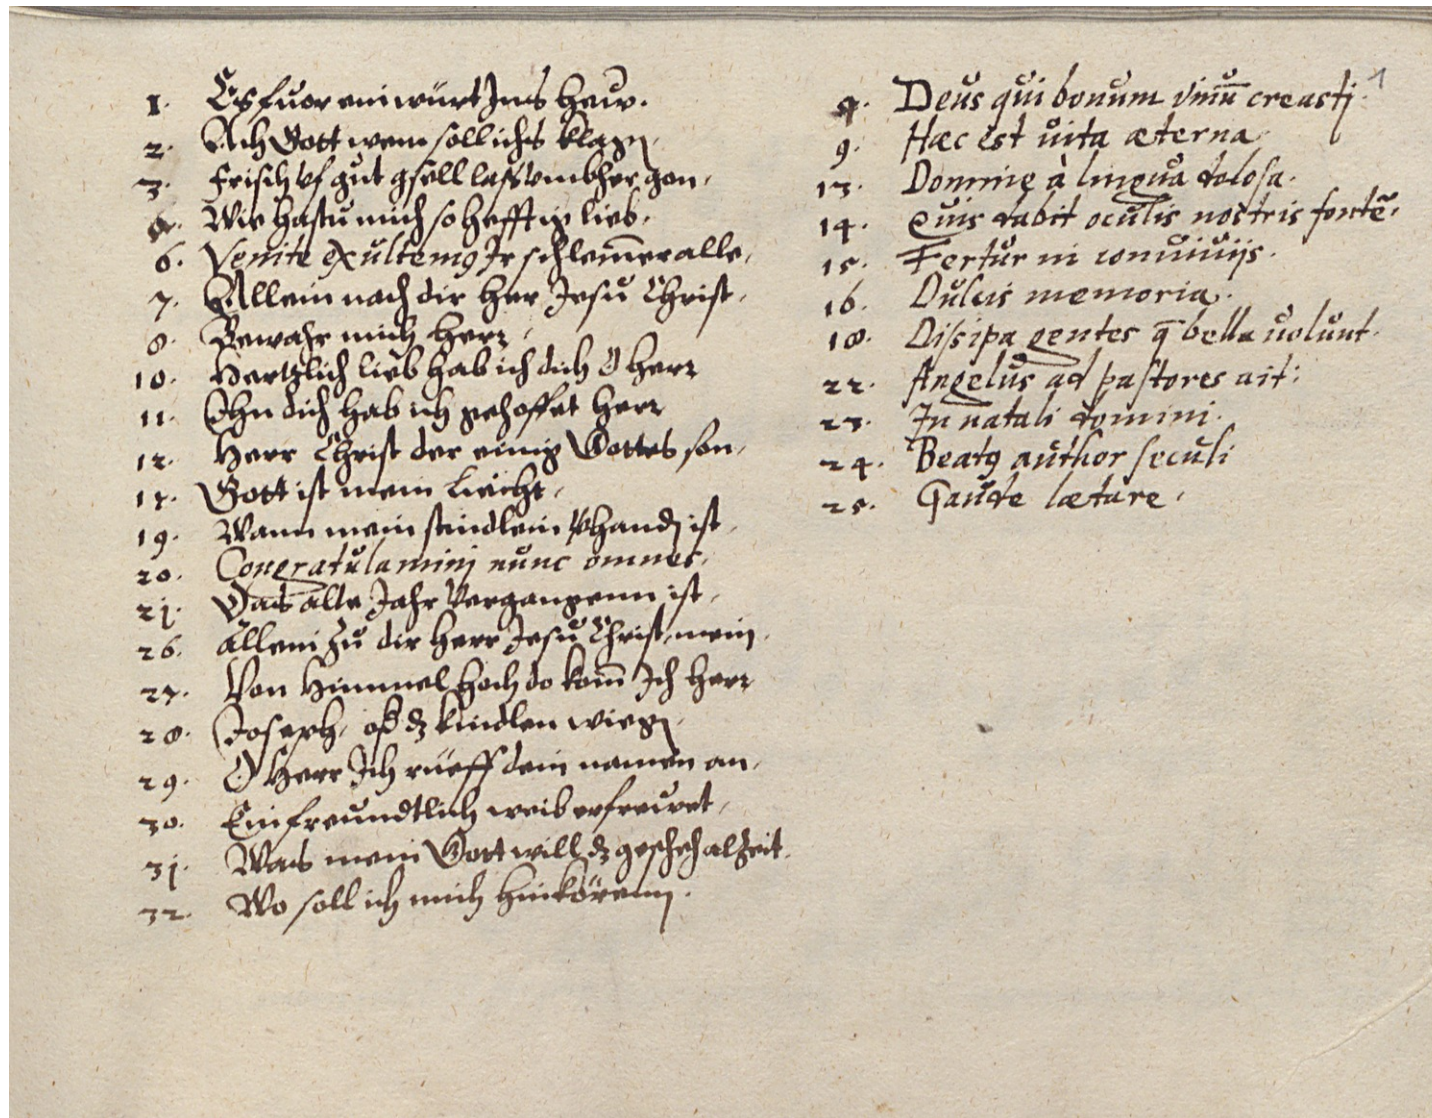 1. Es fuor ein würt Jns heuw.
2. Ach Gott wem soll ichs klagen,
3. Frisch vf gůt gsell lass vmbher gon,
Wie hastu mich so hefftig lieb.
6. Venite exultemus Jr schlem̄er alle,
7. Allein nach dir Her Jesu Christ,
8. Bewahr mich Herr,
10. Hertzlich lieb hab ich dich O herr
11. Jhn dich hab ich gehoffet herr
12. Herr Christ der einig Gottes son,
17. Gott ist mein Liecht,
19. Wann mein stindlein vorhanden ist,
20. Congratulaminj nunc omnes.
21. Das alte Jahr Vergangenn ist,
26. Allein zů dir herr Jesu Christ, mein,
27. Von Himmel hoch do kom̄ Jch herr
28. Joseph,
29. O Herr Jch rüeff dein namen an,
30. Ein freundtlich weib erfreuwet,
31. Was mein Gott will dz gescheh alzeit.
32. Wo soll ich mich hinkören.
1
4. Deus qui bonum vinū creastj.
9. Hæc est uita æterna.
13. Domine à lingua dolosa.
14. Quis dabit oculis nostris fontē.
15. Fertur in conuiuijs.
16. Dulcis memoria.
18. Dissipa gentes q̄ bella uolunt.
22. Angelus ad pastores ait:
23. In natali domini.
24. Beatus author seculi
25. Gaude lætare,